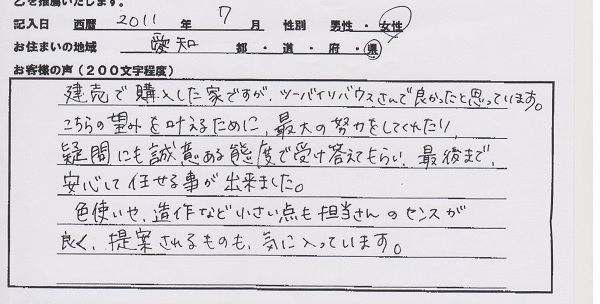 を推薦いたします。
記入日 西暦 2011 年 7 月 性別 男性・女性
お住まいの地域 愛知 都・道・府・県
お客様の声（200文字程度）
建売で購入した家ですが、ツーバイリバウスさんで良かったと思っています。
こちらの望みを叶えるために、最大の努力をしてくれたり、
疑問にも誠意ある態度で受け答えてもらい、最後まで、
安心して任せる事が出来ました。
色使いや、造作など小さい点も担当さんのセンスが
良く、提案されるものも、気に入っています。